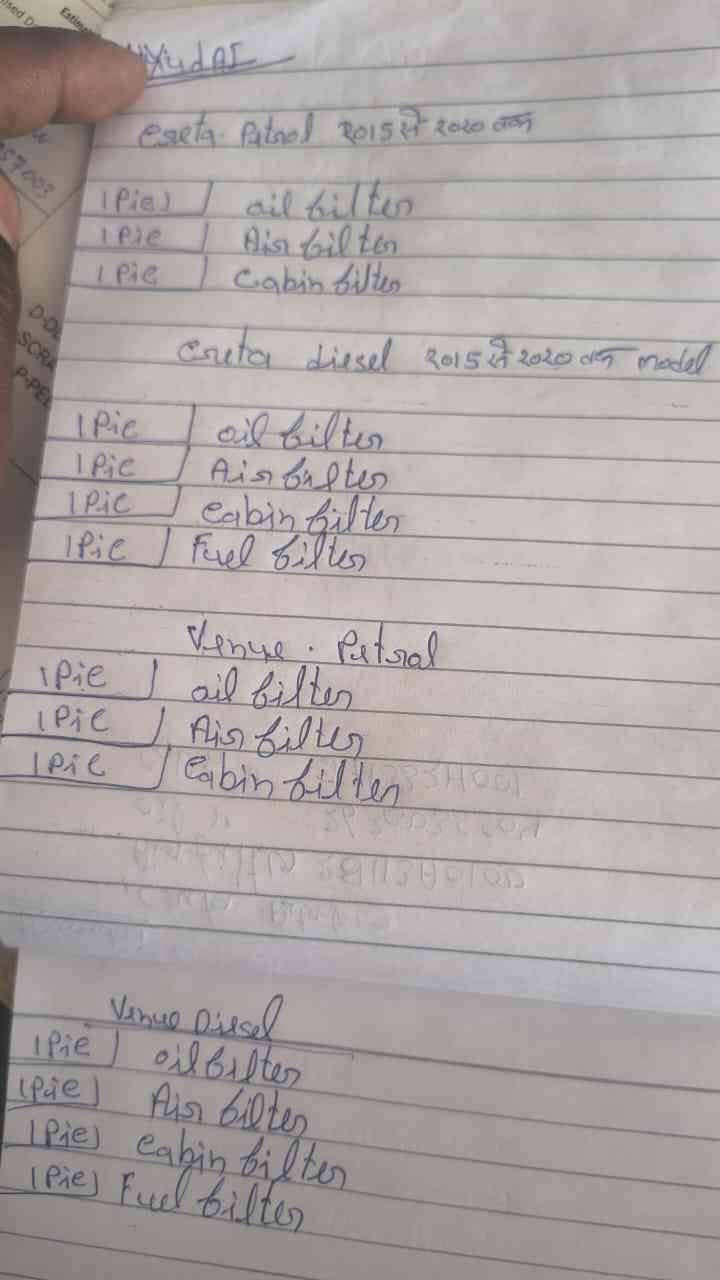 HYUdAI
Creta. Petrol २०15 से २०२० तक
1Pie) oil filter
1Pie Air filter
1Pie Cabin filter
Creta diesel २०15 से २०२० तक model
1Pie oil filter
1Pie Air filter
1Pie Cabin filter
1Pie Fuel filter
Venue. Petral
1Pie oil filter
1Pie Air filter
1Pie Cabin filter
Venue Diesel
1Pie) oil filter
1Pie) Air filter
1Pie) Cabin filter
1Pie) Fuel filter